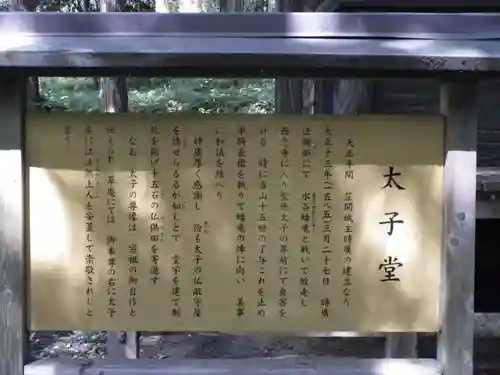 太子堂
天正年間 笠間城主時廣の建立なり
天正十三年(一五八五)三月二十七日 時廣
は鞠始にて 水谷蟠竜と戦いて敗走し
西念寺に入り聖徳太子の尊前にて自害を
計る 時に当山十五世の了与これを止め
単騎長槍を執りて蟠竜の陣に向い 美事
に和議を結べり
時廣厚く感謝し 恰も太子の仏厳守屋
を誅せらるるが如しとて 堂宇を建て制
札を掲げ十五石の仏供田を寄進す
なお 太子の尊像は 宗祖の御自作と
伝えられ 草庵にては 御本尊の右に太子
左には法然上人を安置して崇敬されしと
云う